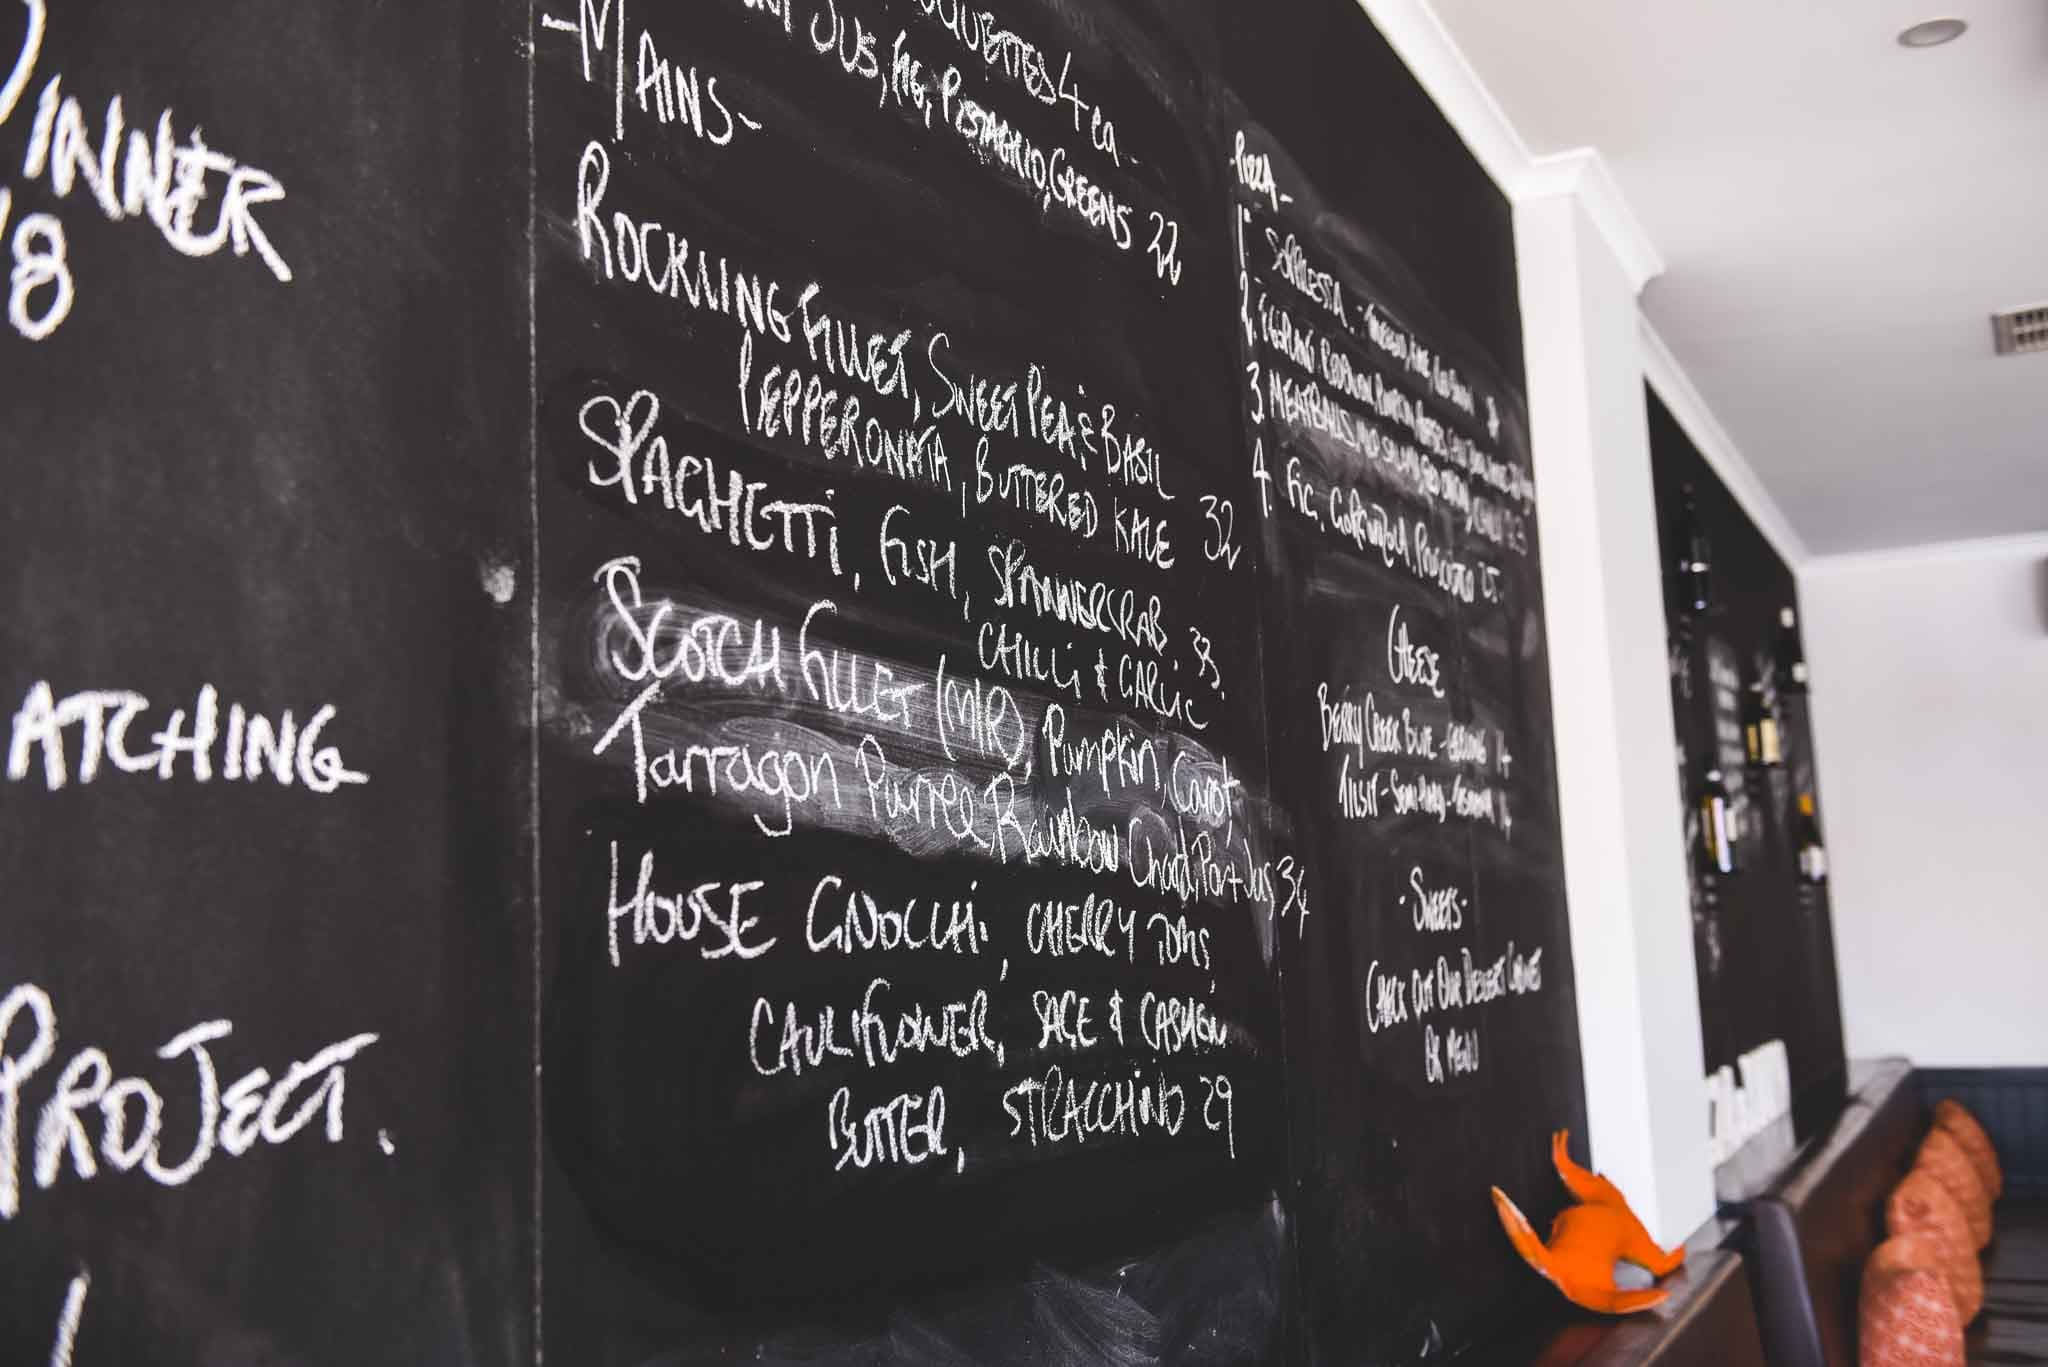 INNER
8
ATCHING
PROJECT.
4 ea -
JUS, FIG, PISTACHIO, GREENS 22
- MAINS -
ROCKLING FILLET, SWEET PEA & BASIL
PEPPERONATA, BUTTERED KALE 32
SPAGHETTI, FISH, SPANNERCRAB. 33.
CHILLI & GARLIC
SCOTCH FILLET (MR), Pumpkin, Carot,
Tarragon Puree, Rainbow Chard, Port Jus 34
HOUSE GNOCCHI, CHERRY TOMS,
CAULIFLOWER, SAGE & CASHEW
BUTTER, STRACCHINO 29
- PIZZA -
1.
2.
3. MEATBALLS, RED ONION, CHILLI 23
4. FIG, GORGONZOLA, PROSCIUTTO 25.
CHEESE
BERRY CREEK BLUE - 14
TILSIT - SEMI HARD - 14
- SWEETS -
CHECK OUT OUR DESSERT CABINET
OR MENU